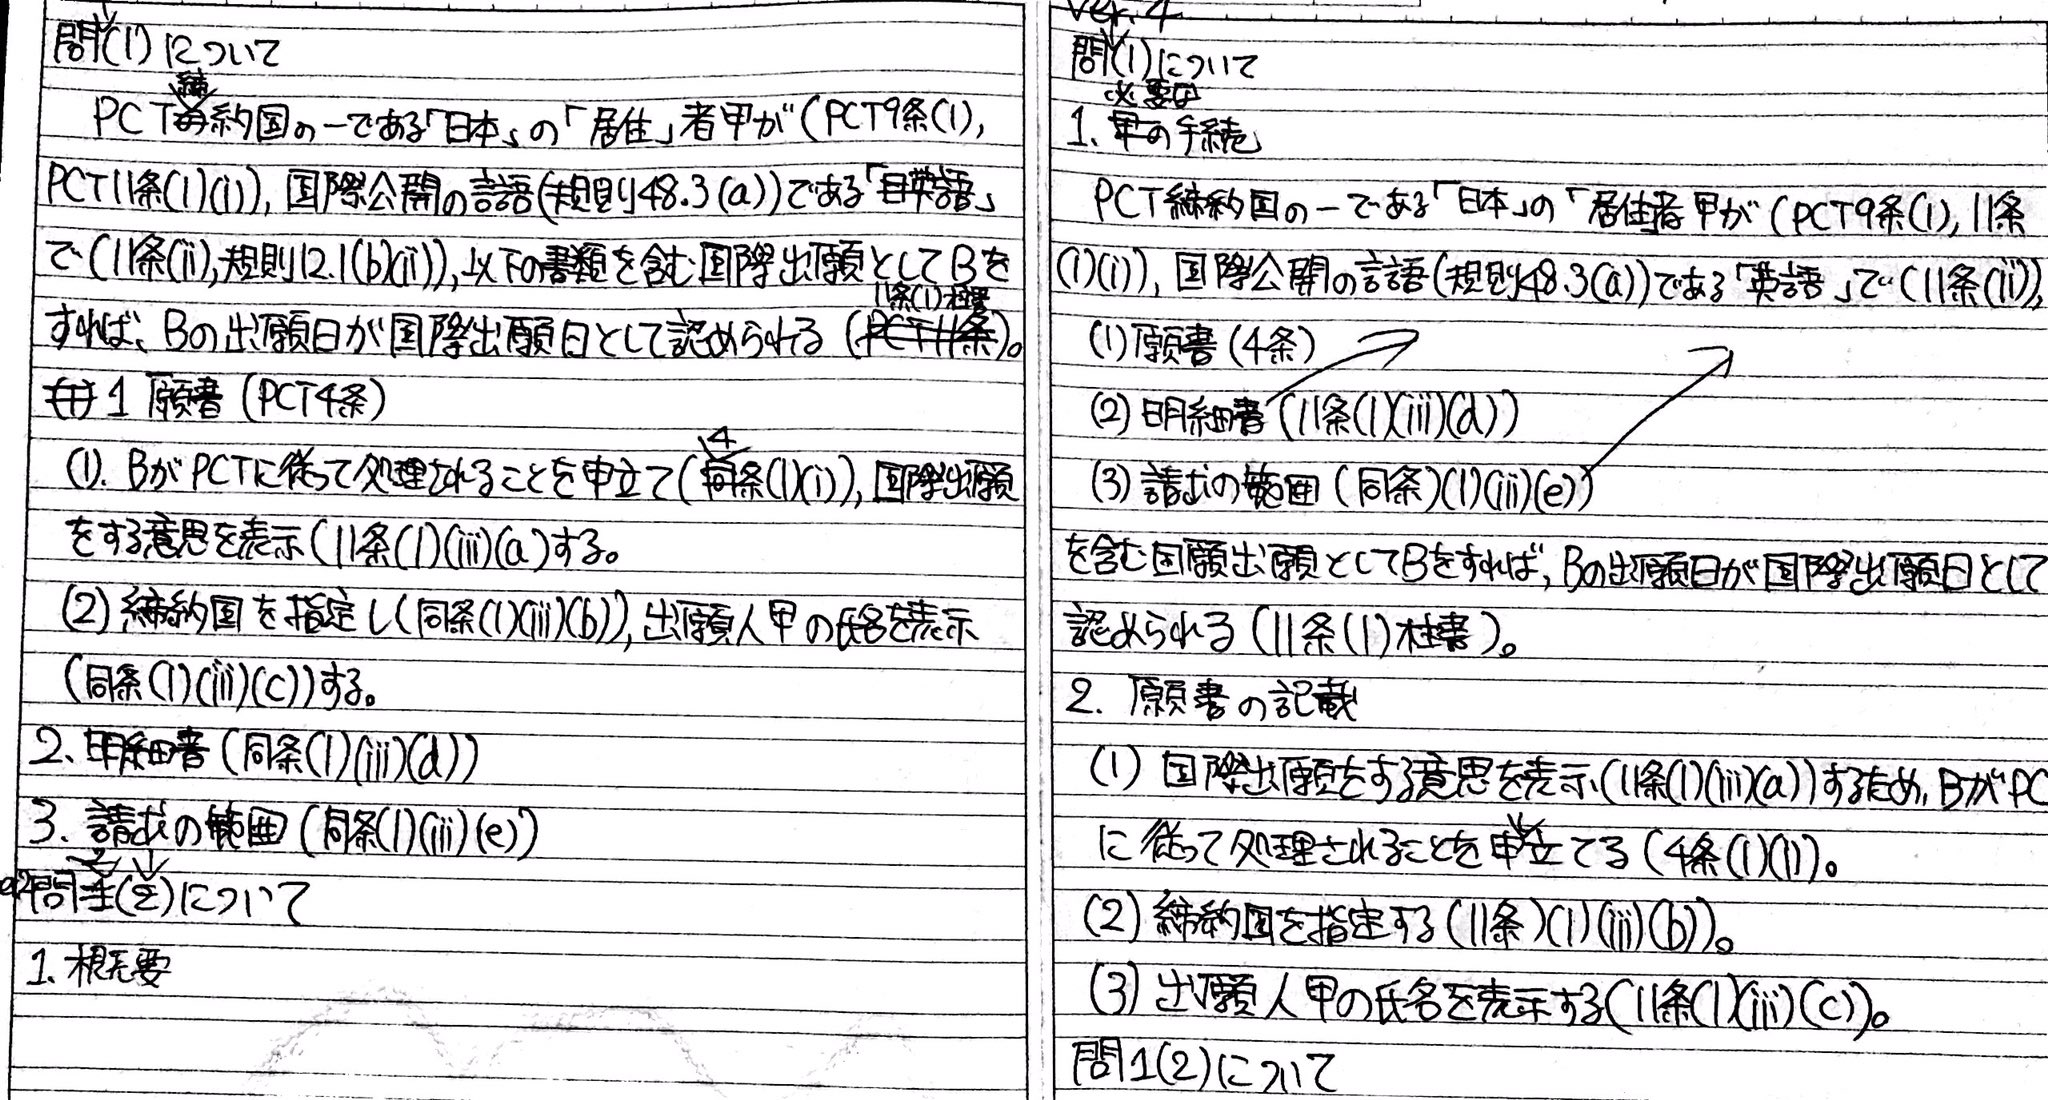 問(1)について
PCT締約国の一である「日本」の「居住」者甲が(PCT9条(1),
PCT11条(1)(i)), 国際公開の言語(規則48.3(a))である「英語」
で(11条(ii), 規則12.1(b)(ii)), 以下の書類を含む国際出願としてBを
すれば、Bの出願日が国際出願日として認められる(11条(1)柱書)。
1 願書(PCT4条)
(1). BがPCTに従って処理されることを申立て(4条(1)(i)), 国際出願
をする意思を表示(11条(1)(iii)(a)する。
(2) 締約国を指定し(同条(1)(iii)(b)), 出願人甲の氏名を表示
(同条(1)(iii)(c))する。
2. 明細書(同条(1)(iii)(d))
3. 請求の範囲(同条(1)(iii)(e))
問(2)について
1. 概要
ver. 4
問(1)について
1. 必要な手続
PCT締約国の一である「日本」の「居住者甲が(PCT9条(1), 11条
(1)(i)), 国際公開の言語(規則48.3(a))である「英語」で(11条(ii)),
(1) 願書(4条)
(2) 明細書(11条(1)(iii)(d))
(3) 請求の範囲(同条)(1)(iii)(e))
を含む国願出願としてBをすれば, Bの出願日が国際出願日として
認められる(11条(1)柱書)。
2. 願書の記載
(1) 国際出願をする意思を表示(11条(1)(iii)(a))するため, BがPC
に従って処理されることを申立てる(4条(1)(i)。
(2) 締約国を指定する(11条)(1)(iii)(b))。
(3) 出願人甲の氏名を表示する(11条(1)(iii)(c))。
問1(2)について